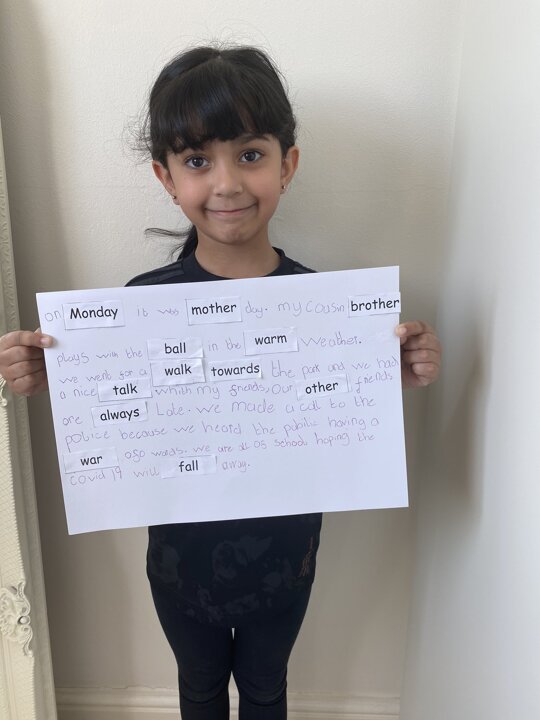 on Monday it was mother day. my cousin brother
plays with the ball in the warm weather.
we went for a walk towards the park and we had
a nice talk which my friends, our other friends
are always Late. we made a call to the
police because we heard the public having a
war ago words. we are all of school hoping the
covid 19 will fall away.